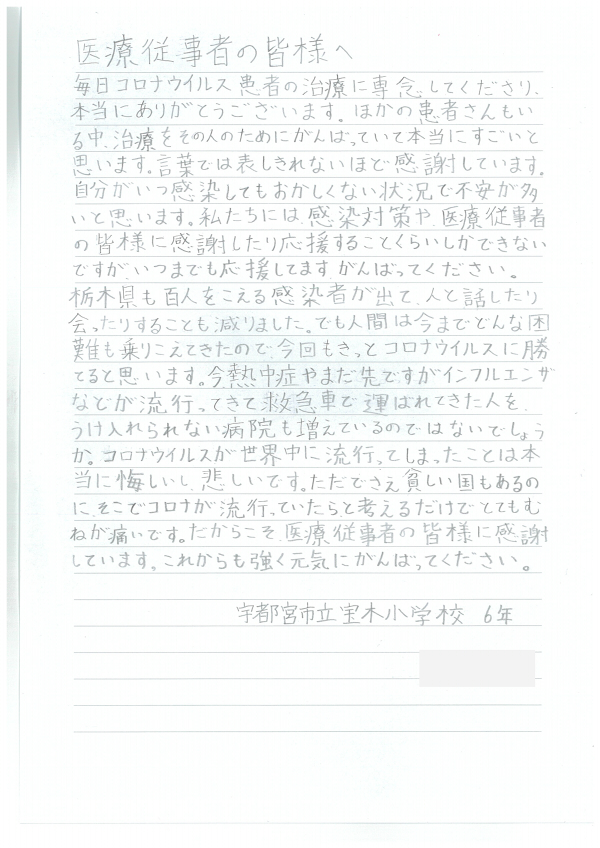 医療従事者の皆様へ
毎日コロナウイルス患者の治療に専念してくださり、
本当にありがとうございます。ほかの患者さんもい
る中、治療をその人のためにがんばっていて本当にすごいと
思います。言葉では表しきれないほど感謝しています。
自分がいつ感染してもおかしくない状況で不安が多
いと思います。私たちには、感染対策や、医療従事者
の皆様に感謝したり応援することくらいしかできない
ですが、いつまでも応援してます。がんばってください。
栃木県も百人をこえる感染者が出て、人と話したり
会ったりすることも減りました。でも人間は今までどんな困
難も乗りこえてきたので、今回もきっとコロナウイルスに勝
てると思います。今熱中症やまだ先ですがインフルエンザ
などが流行ってきて救急車で運ばれてきた人を、
うけ入れられない病院も増えているのではないでしょう
か。コロナウイルスが世界中に流行ってしまったことは本
当に悔しいし、悲しいです。ただでさえ貧しい国もあるの
に、そこでコロナが流行っていたらと考えるだけでとてもむ
ねが痛いです。だからこそ、医療従事者の皆様に感謝
しています。これからも強く元気にがんばってください。
宇都宮市立宝木小学校 6年